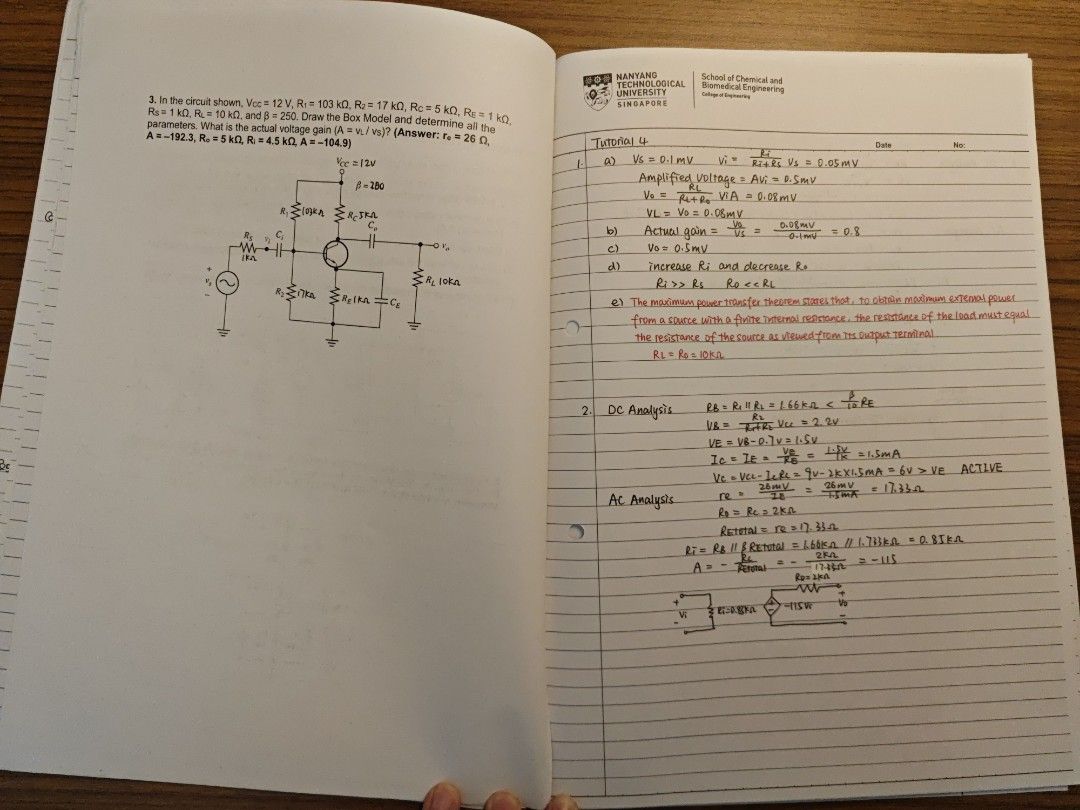 3. In the circuit shown, Vcc = 12 V, R₁ = 103 kΩ, R₂ = 17 kΩ, Rc = 5 kΩ, RE = 1 kΩ,
Rs = 1 kΩ, RL = 10 kΩ, and β = 250. Draw the Box Model and determine all the
parameters. What is the actual voltage gain (A = vL / vs)? (Answer: re = 26 Ω,
A = –192.3, Ro = 5 kΩ, Ri = 4.5 kΩ, A = –104.9)
Vcc = 12V
R₁ 103kΩ
Rc 5kΩ
Co
Rs
1kΩ
vi
C₁
vo
vs
R₂ 17kΩ
RE 1kΩ
CE
RL 10kΩ
NANYANG
TECHNOLOGICAL
UNIVERSITY
SINGAPORE
School of Chemical and
Biomedical Engineering
College of Engineering
Tutorial 4
Date
No:
1. a) Vs = 0.1mV Vi = Ri/(Ri+Rs) Vs = 0.05mV
Amplified Voltage = AVi = 0.5mV
Vo = RL/(RL+Ro) ViA = 0.08mV
VL = Vo = 0.08mV
b) Actual gain = Vo/Vs = 0.08mV/0.1mV = 0.8
c) Vo = 0.5mV
d) increase Ri and decrease Ro
Ri >> Rs Ro << RL
e) The maximum power transfer theorem states that, to obtain maximum external power
from a source with a finite internal resistance, the resistance of the load must equal
the resistance of the source as viewed from its output terminal.
RL = Ro = 10kΩ
2. DC Analysis RB = R₁ || R₂ = 1.66kΩ < β/10 RE
VB = R₂/(R₁+R₂) Vcc = 2.2V
VE = VB - 0.7V = 1.5V
Ic = IE = VE/RE = 1.5V/1K = 1.5mA
Vc = Vcc - IcRc = 9V - 2K×1.5mA = 6V > VE ACTIVE
AC Analysis re = 26mV/IE = 26mV/1.5mA = 17.33Ω
Ro = Rc = 2kΩ
REtotal = re = 17.33Ω
Ri = RB || βREtotal = 1.66kΩ // 1.733kΩ = 0.85kΩ
A = - Rc/REtotal = - 2kΩ/17.33Ω = -115
Ro=2kΩ
+
Vi
-
-115Vi
+
Vo
-